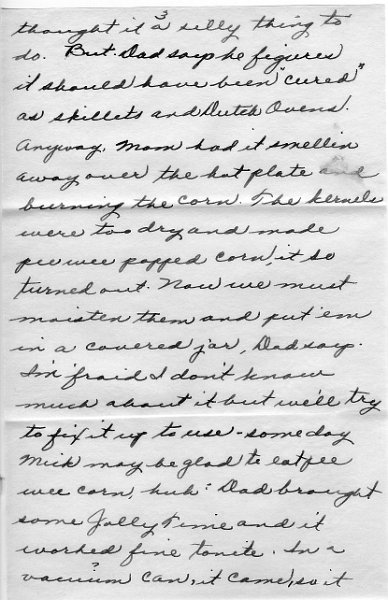 3
thought it a silly thing to
do. But Dad says he figures
it should have been "cured"
as skillets and Dutch Ovens.
Anyway, Mom had it smellin
away over the hot plate and
burning the corn. The kernels
were too dry and made
pee wee popped corn, it so
turned out. Now we must
moisten them and put 'em
in a covered jar, Dad says.
I'm fraid I don't know
much about it but we'll try
to fix it up to use - someday
Mick may be glad to eat pee
wee corn, huh? Dad brought
some Jolly Time and it
worked fine tonite. In a
vacuum can, it came, so it